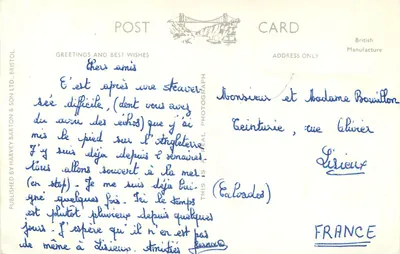 POST CARD
British
Manufacture
GREETINGS AND BEST WISHES
ADDRESS ONLY
PUBLISHED BY HARVEY BARTON & SON LTD., BRISTOL
THIS IS A REAL PHOTOGRAPH
Chers amis
C'est après une traver
sée difficile, (dont vous avez
du avoir des échos) que j'ai
mis le pied sur l'Angleterre
J'y suis déjà depuis 1 semaine.
Nous allons souvent à la mer
(en stop). Je me suis déjà bai
gné quelques fois. Ici le temps
est plutôt pluvieux depuis quelques
jours. J'espère qu'il n'en est pas
de même à Lisieux. Amitiés
Monsieur et Madame Bouillon
Teinturie, rue Olivier
Lisieux
(Calvados)
FRANCE